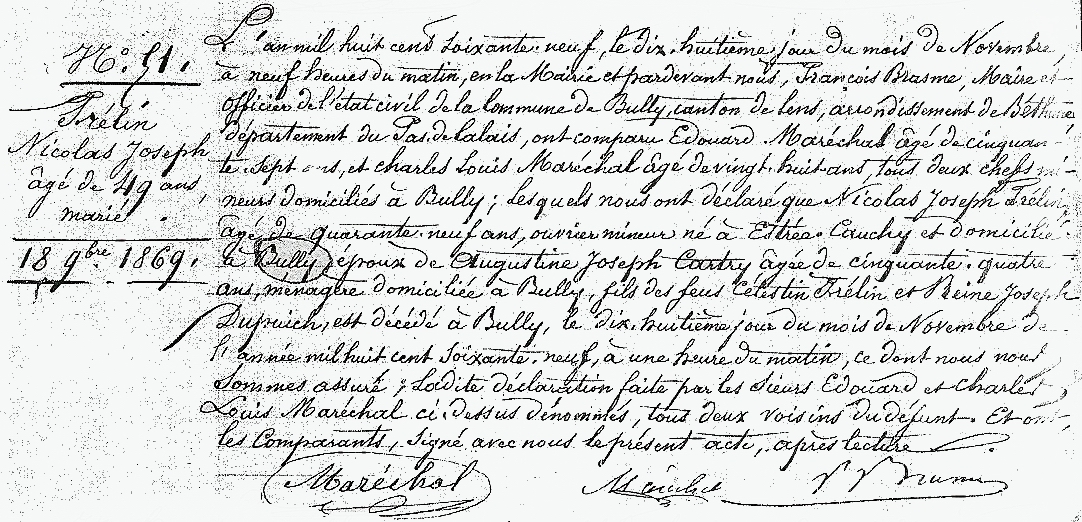 N.° 51.
Frélin
Nicolas Joseph
âgé de 49 ans,
marié.
18 9bre 1869.
L'an mil huit cent soixante-neuf, le dix-huitième jour du mois de Novembre
à neuf heures du matin, en la Mairie et pardevant nous, François Brasme, Maire et
officier de l'état civil de la commune de Bully, canton de Lens, arrondissement de Béthune,
département du Pas-de-Calais, ont comparu Edouard Maréchal âgé de cinquan-
te-sept ans, et Charles Louis Maréchal âgé de vingt-huit ans, tous deux chefs mi-
neurs domiciliés à Bully; lesquels nous ont déclaré que Nicolas Joseph Frélin,
âgé de quarante-neuf ans, ouvrier mineur né à Estrée-Cauchy et domicilié
à Bully, époux de Augustine Joseph Cartry âgée de cinquante-quatre
ans, ménagère domiciliée à Bully, fils des feus Célestin Frélin et Reine Joseph
Dupuich, est décédé à Bully, le dix-huitième jour du mois de Novembre de
l'année mil huit cent soixante-neuf, à une heure du matin, ce dont nous nous
sommes assuré; Ladite déclaration faite par les sieurs Edouard et Charles
Louis Maréchal ci-dessus dénommés, tous deux voisins du défunt. Et ont,
les Comparants, signé avec nous le présent acte, après lecture.
Maréchal